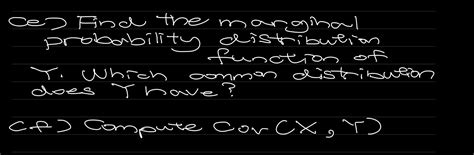 (e) Find the marginal
probability distribution
function of
Y. Which common distribution
does Y have?
(f) Compute Cov (X, Y)